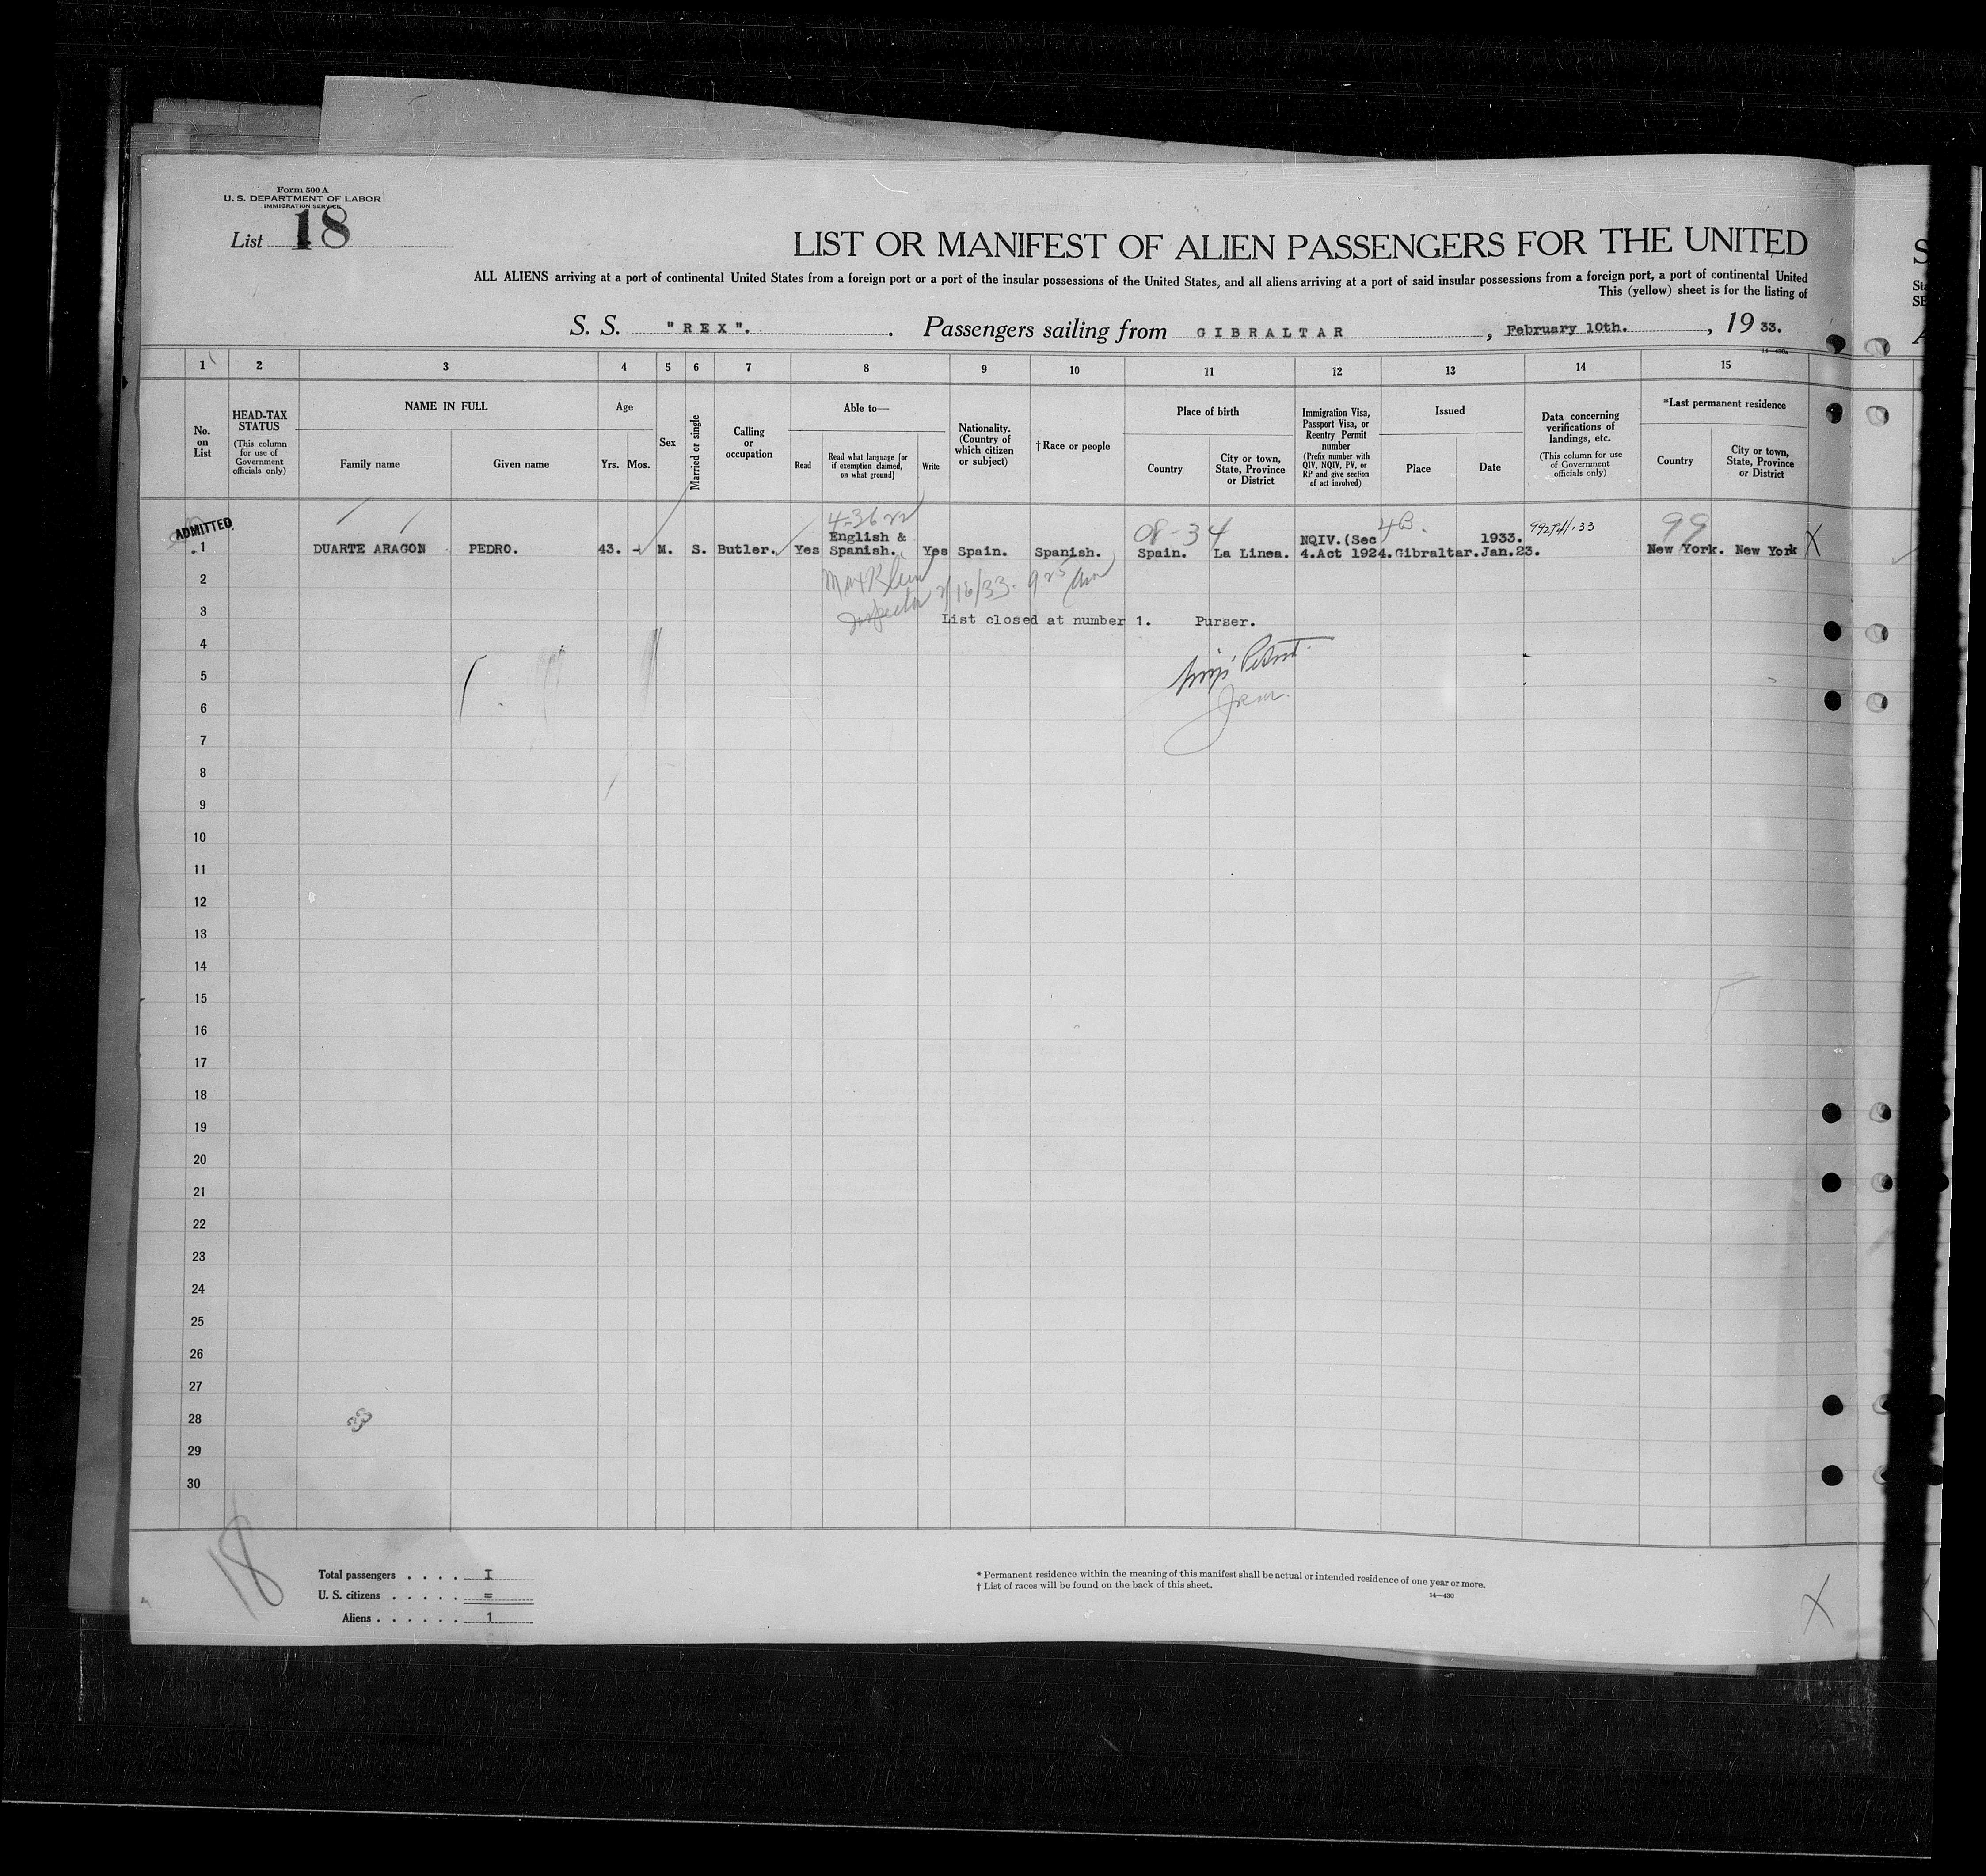 Form 500 A
U. S. DEPARTMENT OF LABOR
IMMIGRATION SERVICE
List 18
LIST OR MANIFEST OF ALIEN PASSENGERS FOR THE UNITED
ALL ALIENS arriving at a port of continental United States from a foreign port or a port of the insular possessions of the United States, and all aliens arriving at a port of said insular possessions from a foreign port, a port of continental United
This (yellow) sheet is for the listing of
S. S. "REX". . Passengers sailing from GIBRALTAR , February 10th. , 19 33.
14—430a
1 2 3 4 5 6 7 8 9 10 11 12 13 14 15
No. on List
HEAD-TAX STATUS
(This column for use of Government officials only)
NAME IN FULL
Family name
Given name
Age
Yrs. Mos.
Sex
Married or single
Calling or occupation
Able to—
Read
Read what language [or if exemption claimed, on what ground]
Write
Nationality. (Country of which citizen or subject)
†Race or people
Place of birth
Country
City or town, State, Province or District
Immigration Visa, Passport Visa, or Reentry Permit number
(Prefix number with QIV, NQIV, PV, or RP and give section of act involved)
Issued
Place
Date
Data concerning verifications of landings, etc.
(This column for use of Government officials only)
*Last permanent residence
Country
City or town, State, Province or District
ADMITTED
4-36 08-34 4B. 99
English & NQIV.(Sec 1933.
1 DUARTE ARAGON PEDRO. 43. - M. S. Butler. Yes Spanish. Yes Spain. Spanish. Spain. La Linea. 4.Act 1924.Gibraltar.Jan.23. New York. New York X
2
Inspector 2/16/33
3 List closed at number 1. Purser.
4
5
6
7
8
9
10
11
12
13
14
15
16
17
18
19
20
21
22
23
24
25
26
27
28
29
30
18
Total passengers . . . . I
U. S. citizens . . . . . =
Aliens . . . . . . 1
* Permanent residence within the meaning of this manifest shall be actual or intended residence of one year or more.
† List of races will be found on the back of this sheet.
14—430
X